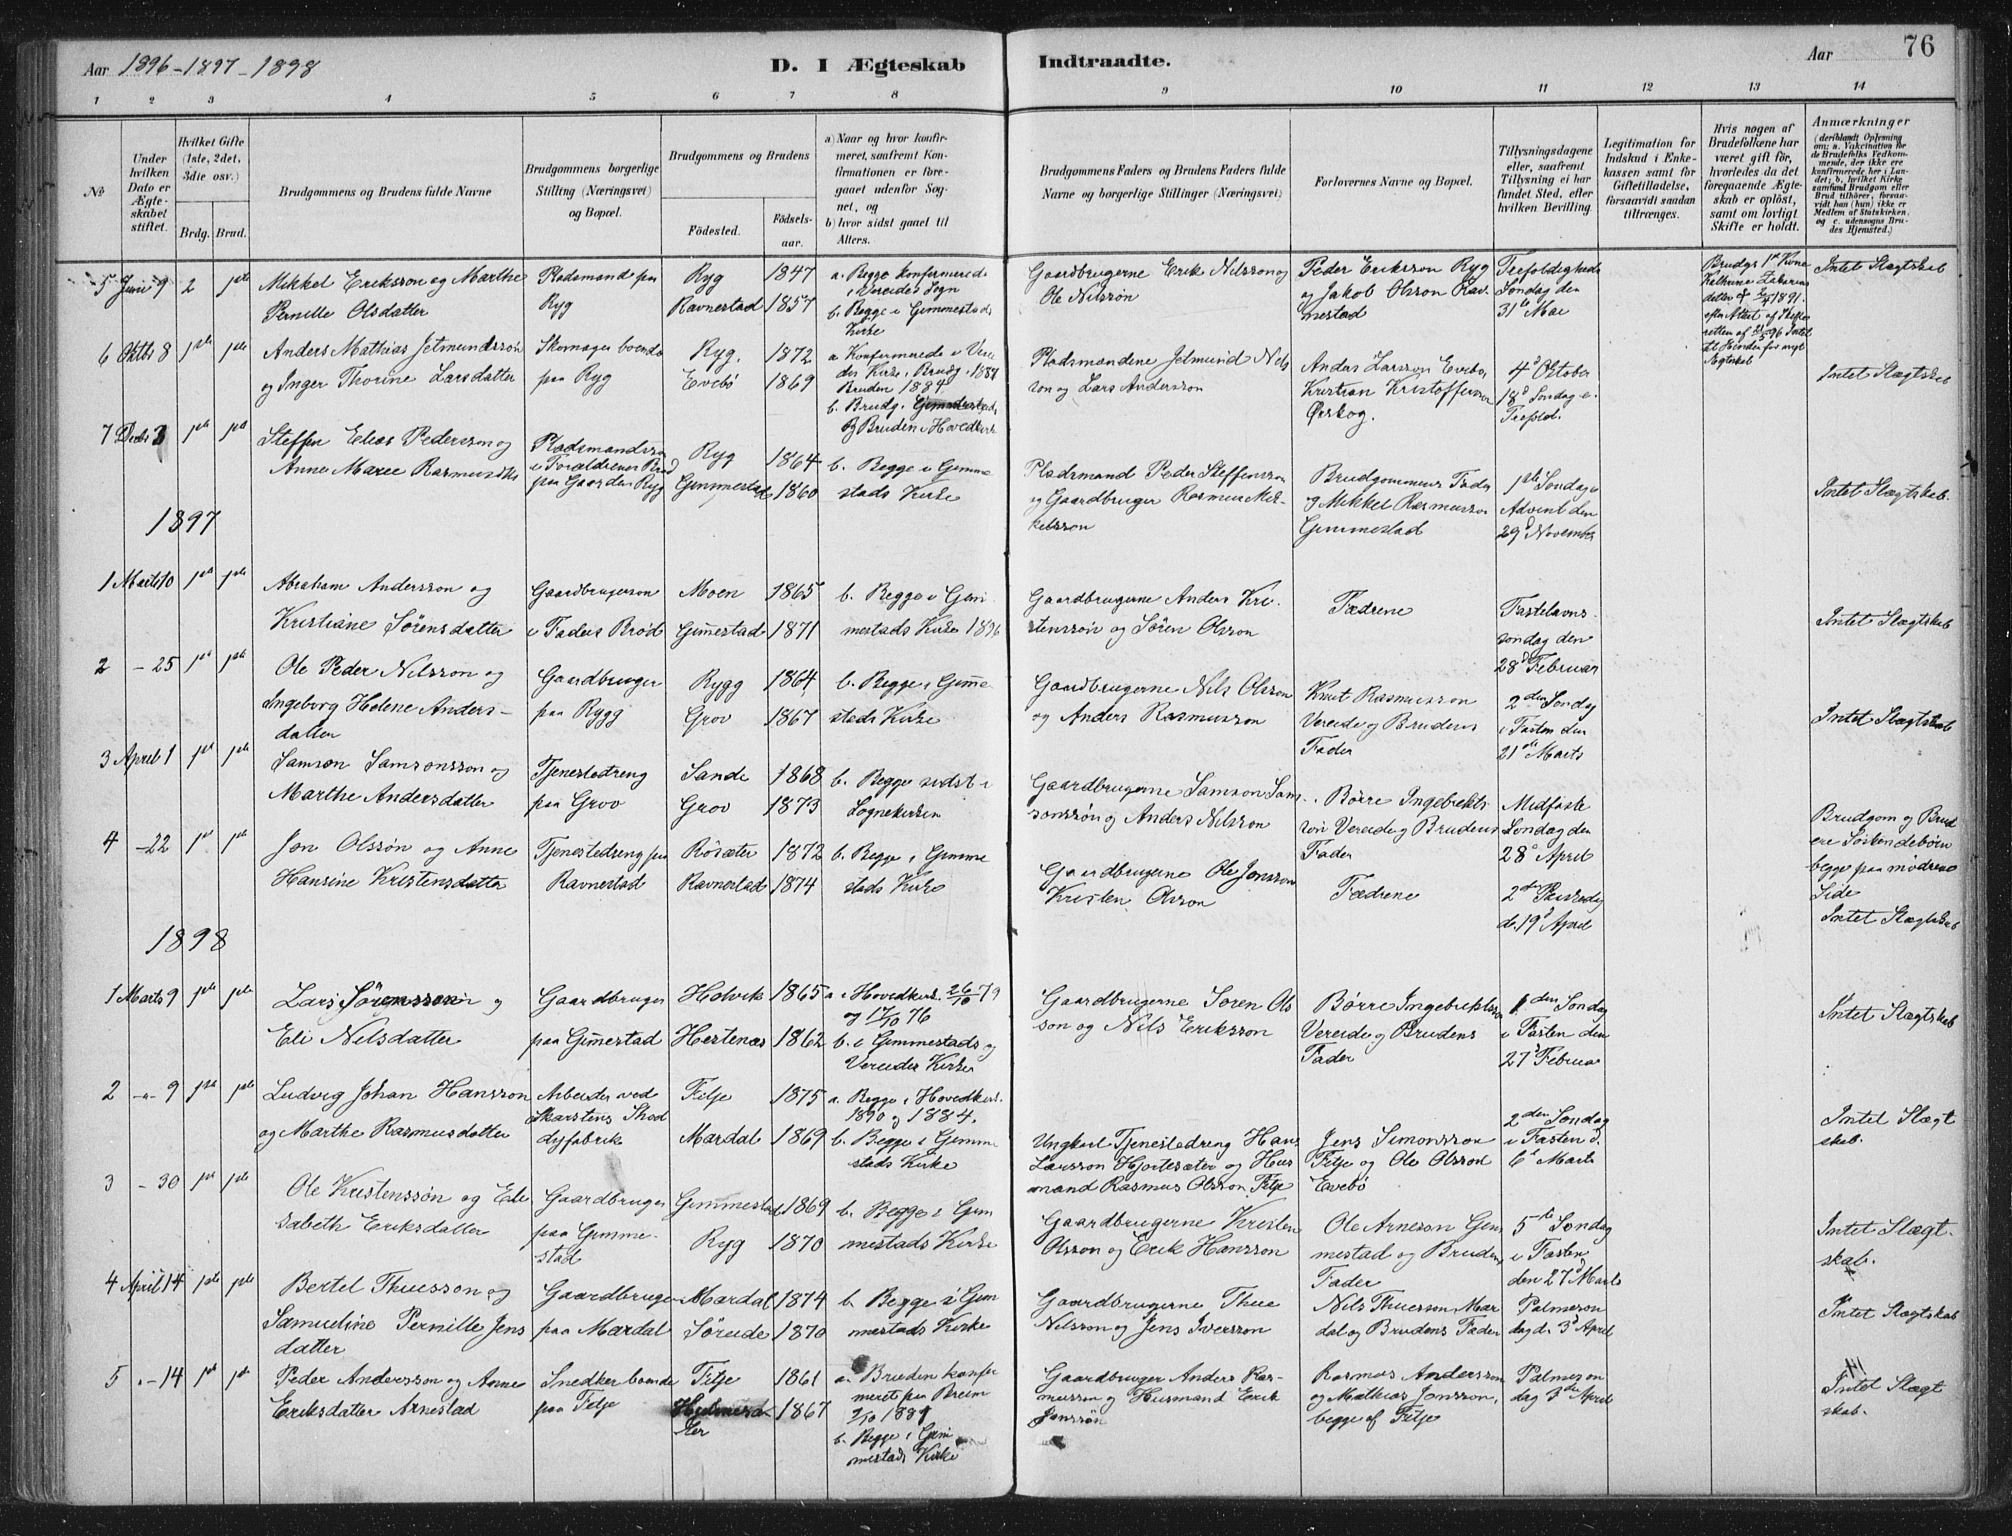 Aar 1896-1897-1898
D. I Ægteskab Indtraadte.
Aar 76
1 2 3 4 5 6 7 8 9 10 11 12 13 14
No
Under hvilken Dato er Ægteskabet stiftet.
Hvilket Gifte (1ste, 2det, 3die osv.)
Brdg. Brud.
Brudgommens og Brudens fulde Navne
Brudgommens borgerlige Stilling (Næringsvei) og Bopæl.
Brudgommens og Brudens
Fødested.
Fødsels-aar.
a) Naar og hvor konfirmeret, saafremt Konfirmationen er foregaaet udenfor Sognet, og
b) hvor sidst gaaet til Alters.
Brudgommens Faders og Brudens Faders fulde Navne og borgerlige Stillinger (Næringsvei)
Forlovernes Navne og Bopæl.
Tillysningsdagene eller, saafremt Tillysning ei har fundet Sted, efter hvilken Bevilling.
Legitimation for Indskud i Enkekassen samt for Giftetilladelse, forsaavidt saadan tiltrænges.
Hvis nogen af Brudefolkene har været gift før, hvorledes da det foregaaende Ægteskab er opløst, samt om lovligt Skifte er holdt.
Anmærkninger
(deriblandt Oplysning om: a. Vakcination for de Brudefolks Vedkommende, der ikke ere konfirmerede her i Landet; b. hvilket Kirkesamfund Brudgom eller Brud tilhører, forsaavidt han (hun) ikke er Medlem af Statskirken, og c. udensogns Brudes Hjemsted.)
5 Juni 9 2 1ste
Mikkel Eriksson og Marthe
Pernille Olsdatter
Pladsmand paa
Ryg
Ryg 1847
Ravnestad 1857
a. Begge konfirmerede
i Vereides Sogn
b. Begge i Gimmestads
Kirke
Gaardbrugerne Erik Nilsson og
Ole Nilssøn
Peder Eriksson Ryg
og Jakob Olsson Rav-
nestad
Trefoldigheds
Søndag den
31te Mai
Brudgs 1ste Kone
1891.
Intet Slægtskab
6 Oktbr 8 1ste 1ste
Anders Mathias Jetmundssøn
og Inger Thorine Larsdatter
Skomager boende
paa Ryg
Ryg. 1872
Evebø 1869
a Konfirmerede i Verei
des Kirke, Brudg. 1887
Bruden 1884
b. Brudg. Gimmestads
og Bruden i Hovedkirk
Pladsmændene Jetmund Nils
son og Lars Andersson
Anders Larsson Evebø
Kristian Kristoffersson
Ørskog.
4de Oktober
18de Søndag e.
Trefold.
Intet Slægtskab
7 Decbr 3 1ste 1ste
Steffen Elias Pedersson og
Anne Marie Rasmusdtr
Pladsmandssøn
i Forældrenes Brød
paa Gaarden Ryg
Ryg 1864
Gimmestad 1860
b. Begge i Gimme
stads Kirke
Pladsmand Peder Steffensson
og Gaardbruger Rasmus Mik-
kelsson
Brudgommens Fader
og Mikkel Rasmusson
Gimmestad
1ste Søndag i
Advent den
29de November
Intet Slægtskab.
1897
1 Marts 10 1ste 1ste
Abraham Andersson og
Kristiane Sørensdatter
Gaardbrugersøn
i Faders Brød
Moen 1865
Gimestad 1871
b. Begge i Gim
mestads Kirke 1896
Gaardbrugerne Anders Kri-
stenssøn og Søren Olsson
Fædrene
Fastelavns-
søndag den
28de Februar
Intet Slægtskab
2 - 25 1ste 1ste
Ole Peder Nilsson og
Ingeborg Helene Anders-
datter
Gaardbruger
paa Rygg
Rygg 1864
Grov 1867
b. Begge i Gimme
stads Kirke
Gaardbrugerne Nils Olsson
og Anders Rasmusson
Knut Rasmusson
Vereide og Brudens
Fader
2den Søndag
i Fasten den
21de Marts
Intet Slægtskab
3 April 1 1ste 1ste
Samson Samsonsson og
Marthe Andersdatter
Tjenestedreng
paa Grov
Sande 1868
Grov 1873
b. Begge sidst i
Sognekirken
Gaardbrugerne Samson Sam-
sonssøn og Anders Nilsson
Børre Ingebrikts-
søn Vereide og Brudens
Fader
Midfaste
Søndag den
28de April
Brudgom og Brud
ere Søskendebørn
begge paa mødrene
Side
4 - 22 1ste 1ste
Jon Olssøn og Anne
Hansine Kristensdatter
Tjenestedreng paa
Ravnestad
Røsæter 1872
Ravnestad 1874
b. Begge i Gimme
stads Kirke
Gaardbrugerne Ole Jonsson
Kristen Olsson
Fædrene
2den Paaskedag
d. 19de April
Intet Slægtskab
1898
1 Marts 9 1ste 1ste
Lars Sørensson og
Eli Nilsdatter
Gaardbruger
paa Gimestad
Holvik 1865
Hestenæs 1862
a. i Hovedkirk. 26/10 79
og 17/10 76
b. i Gimmestads og
Vereides Kirke
Gaardbrugerne Søren Ols
son og Nils Eriksson
Børre Ingebriktsson
Vereide og Brudens
Fader
1den Søndag
i Fasten den
27de Februar
Intet Slægtskab
2 -"- 9 1ste 1ste
Ludvig Johan Hansson
og Marthe Rasmusdatter
Arbeider ved
Skarstens Shod
dyfabrik
Fitje 1875
Mardal 1869
a. Begge i Hovedkirk.
1890 og 1884.
b. Begge i Gimme
stads Kirke
Ungkarl Tjenestedreng Hans
Larsson Hjortesæter og Hus
mand Rasmus Olsson Fitje
Jens Simonsson
Fitje og Ole Olsson
Evebø
2den Søndag
i Fasten d.
6te Marts
Intet Slægt
skab.
3 - 30 1ste 1ste
Ole Kristenssøn og Eli
sabeth Eriksdatter
Gaardbruger
paa Gimme-
stad
Gimmestad 1869
Ryg 1870
b. Begge i Gim
mestads Kirke
Gaardbrugerne Kristen
Olsson og Erik Hansson
Ole Arneson Gim
mestad og Brudens
Fader
5te Søndag
i Fasten
den 27de Marts
Intet Slægt-
skab.
4 April 14 1ste 1ste
Bertel Thuesson og
Samueline Pernille Jens
datter
Gaardbruger
paa Mardal
Mardal 1874
Søreide 1870
b. Begge i Gim
mestads Kirke
Gaardbrugerne Thue
Nilsson og Jens Iversson
Nils Thuesson Mar
dal og Brudens Fader
Palmesøn
dag d. 3de April
Intet Slægtskab
5 - 14 1ste 1ste
Peder Andersson og Anne
Eriksdatter Arnestad
Snedker boende
paa Fitje
Fitje 1861
1867
a. Bruden konfir
meret paa Breim
1881
b. Begge i Gim
mestads Kirke
Gaardbruger Anders Ras-
musson og Husmand Erik
Jonssøn
Rasmus Andersson
og Mathias Jonsson,
begge af Fitje
Palmesøn
dag 3die April
Intet Slægt
skab.